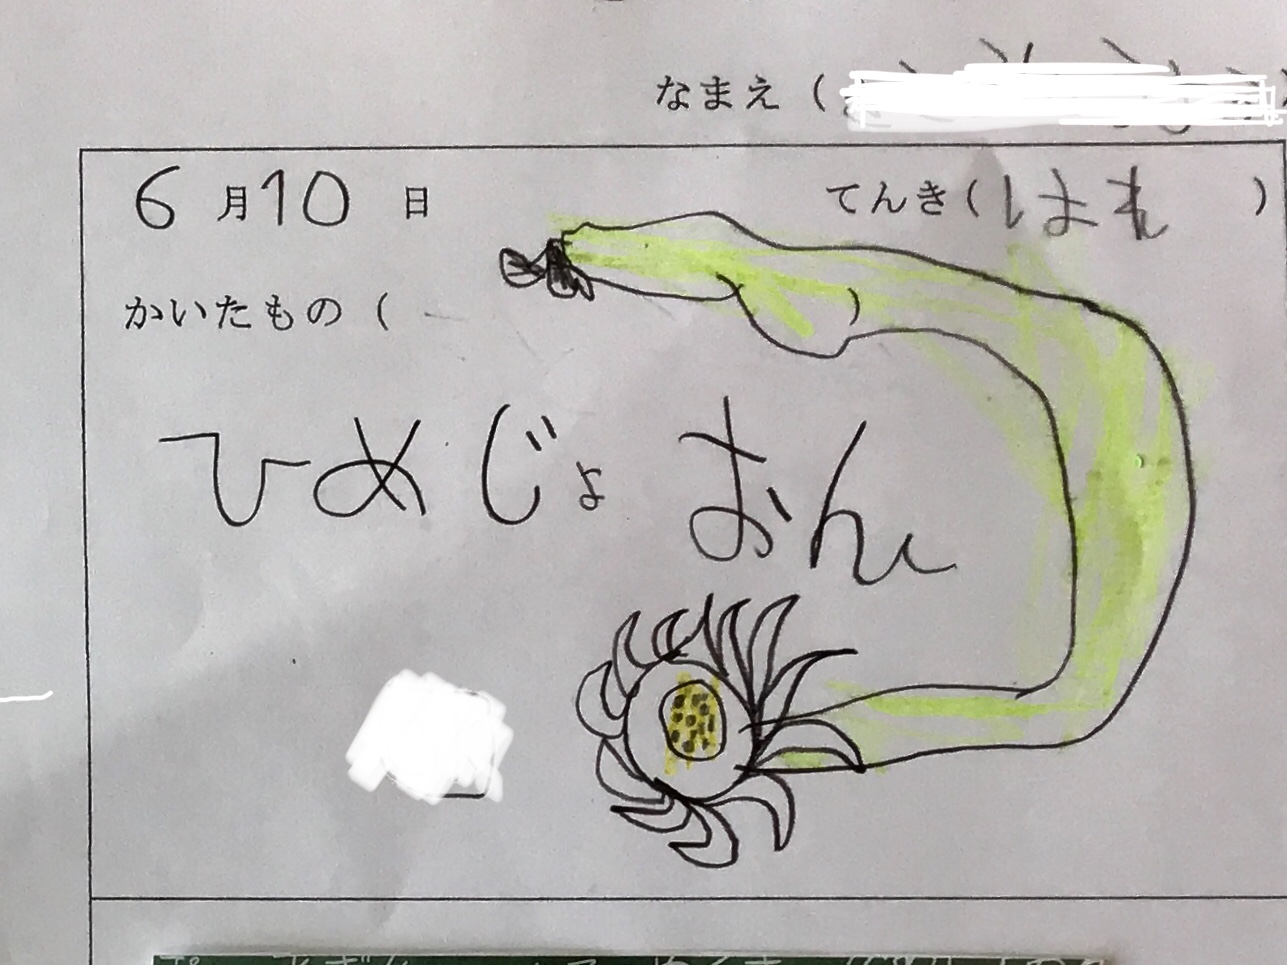 なまえ（
6月10日 てんき（はれ）
かいたもの（
ひめじょおん